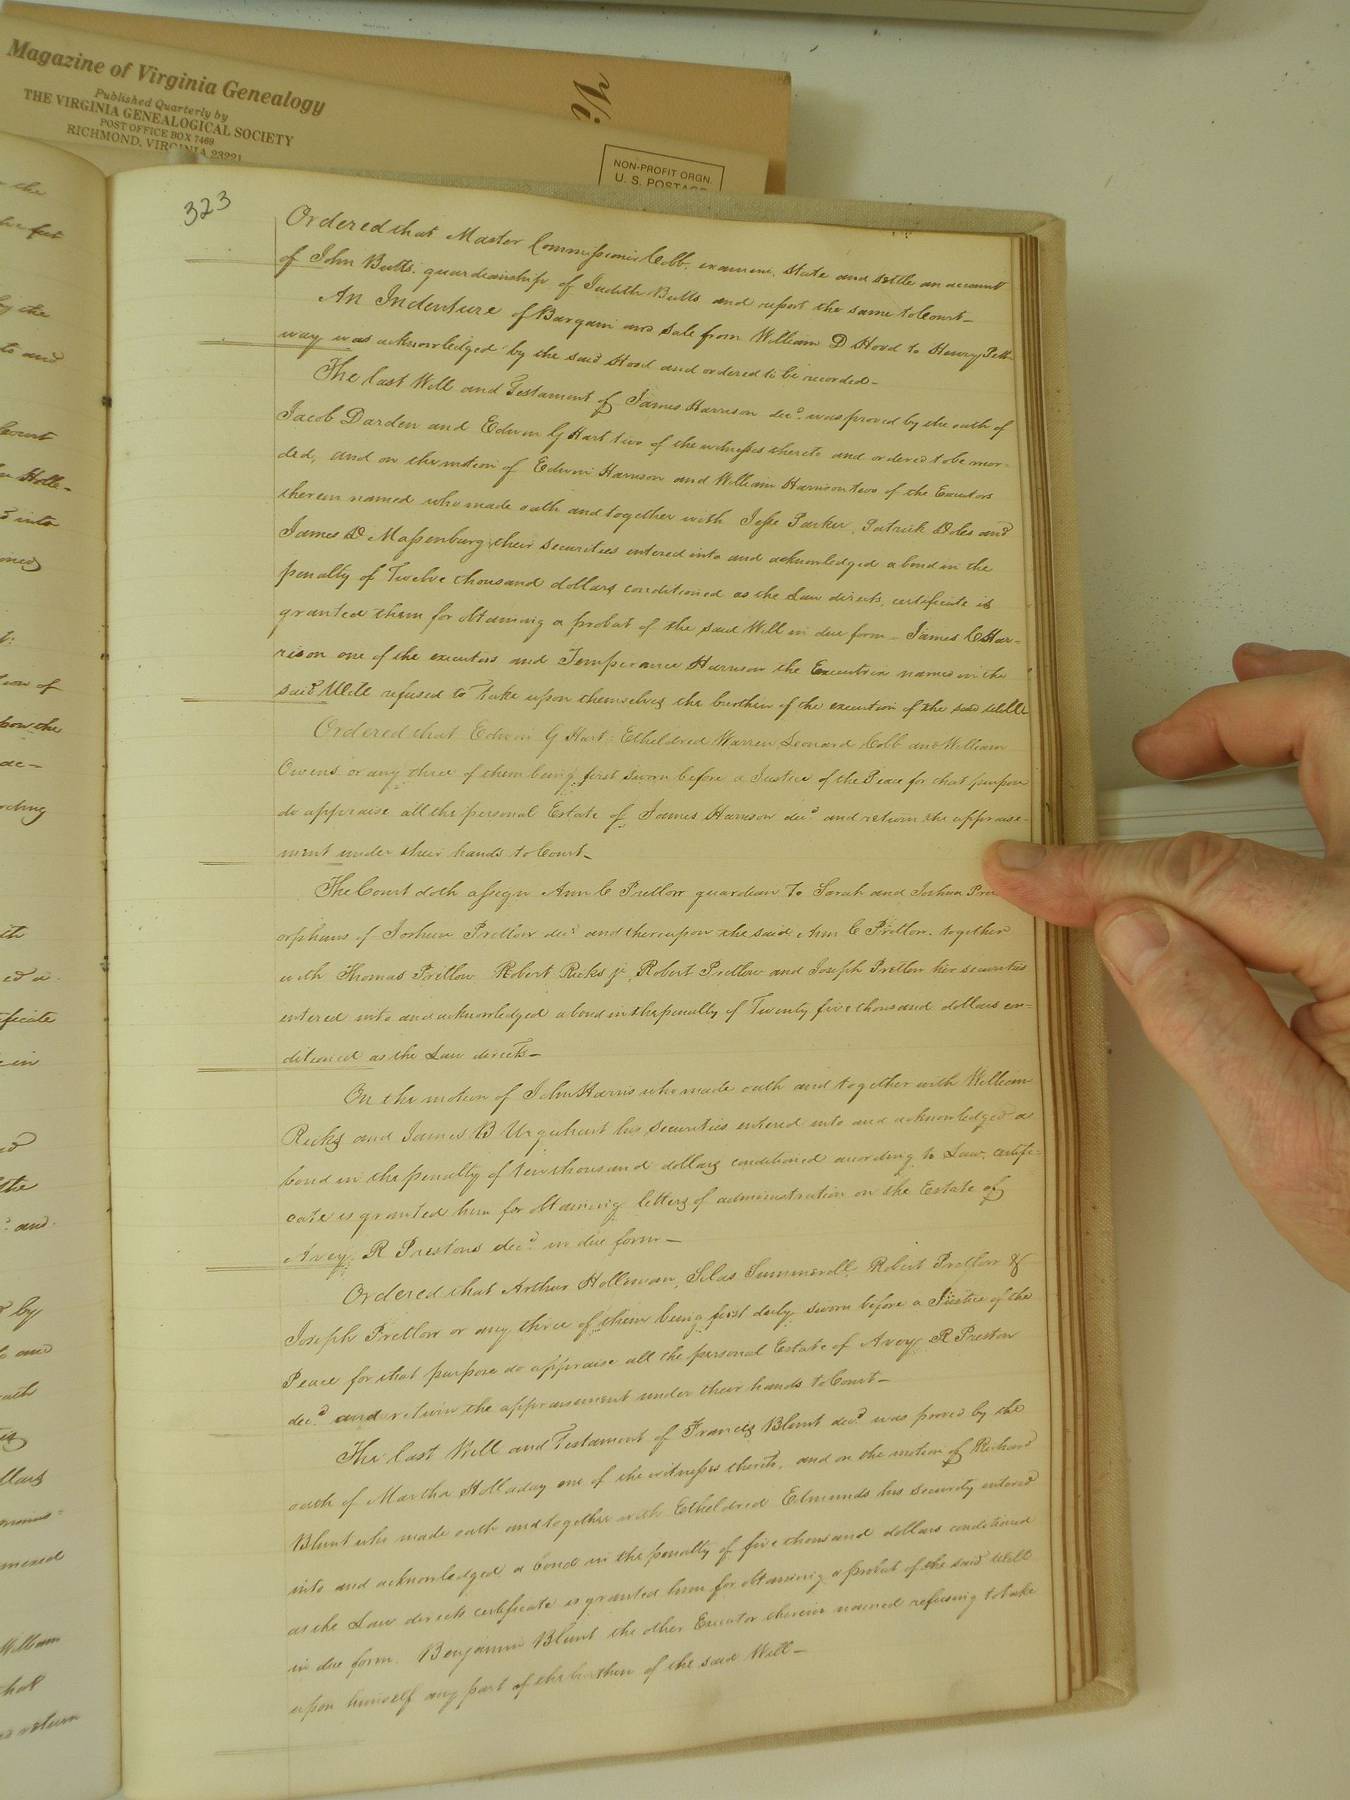 Magazine of Virginia Genealogy
Published Quarterly by
THE VIRGINIA GENEALOGICAL SOCIETY
POST OFFICE BOX 7469
RICHMOND, VIRGINIA 23221
Vi
NON-PROFIT ORGN.
U. S. POSTAGE
323
Ordered that Master Commissioner Cobb, examine, State and settle an account
of John Butts. guardianship of Judith Butts and report the same to Court—
An Indenture of Bargain and Sale from William D Hood to Henry Pett-
way was acknowledged by the said Hood and ordered to be recorded—
The last Will and Testament of James Harrison decd. was proved by the oath of
Jacob Darden and Edwin G Hart two of the witnesses thereto and ordered to be recor-
ded, and on the motion of Edwin Harrison and William Harrison two of the Executors
therein named who made oath and together with Jesse Parker, Patrick Doles and
James D Massenburg their securities entered into and acknowledged a bond in the
penalty of Twelve thousand dollars conditioned as the Law directs, certificate is
granted them for obtaining a probat of the said Will in due form— James C Har-
rison one of the executors and Temperance Harrison the Executrix names in the
said Will refused to take upon themselves the burthen of the execution of the said Will
Ordered that Edwin G Hart, Etheldred Warren Leonard Cobb and William
Owens or any three of them being first sworn before a Justice of the Peace for that purpose
do appraise all the personal Estate of James Harrison decd and return the appraise-
ment under their hands to Court—
The Court doth assign Ann C Pretlow guardian To Sarah and Joshua Pre
orphans of Joshua Pretlow decd and thereupon the said Ann C Pretlow. together
with Thomas Pretlow Robert Ricks jr, Robert Pretlow and Joseph Pretlow her securities
entered into and acknowledged a bond in the penalty of Twenty five thousand dollars con-
ditioned as the Law directs—
On the motion of John Harris who made oath and together with William
Ricks and James B Urquhart his securities entered into and acknowledged a
bond in the penalty of ten thousand dollars conditioned according to Law, certifi-
cate is granted him for obtaining letters of administration on the Estate of
Avey R Prestons decd. in due form—
Ordered that Arthur Holleman, Silas Summerell, Robert Pretlow &
Joseph Pretlow or any three of them being first duly sworn before a Justice of the
Peace for that purpose do appraise all the personal Estate of Avey R Preston
decd. and return the appraisement under their hands to Court—
The last Will and Testament of Francis Blunt decd was proved by the
oath of Martha Holladay one of the witnesses thereto, and on the motion of Richard
Blunt who made oath and together with Etheldred Edmunds his security entered
into and acknowledged a bond in the penalty of five thousand dollars conditioned
as the Law directs certificate is granted him for obtaining a probat of the said Will
in due form. Benjamin Blunt the other Executor therein named refusing to take
upon himself any part of the burthen of the said Will—